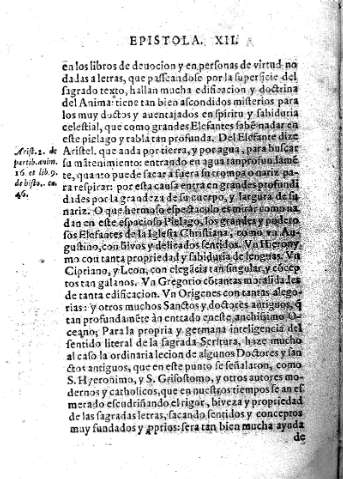 EPISTOLA. XII.
en los libros de deuocion y en personas de virtud no
dadas a letras, que passeandose por la superficie del
sagrado texto, hallan mucha edificacion y doctrina
del Anima: tiene tan bien ascondidos misterios para
los muy doctos y auentajados en spiritu y sabiduria
celestial, que como grandes Elefantes sabē nadar en
este pielago y rabla tan profunda. Del Elefante dize
Aristel. que anda por tierra, y por agua, para buscar
su mātenimiento: entrando en agua tan profundamē
te, quanto puede sacar a fuera su trompa o nariz pa-
ra respirar: por esta causa entra en grandes profundi
dades por la grandeza de su cuerpo, y largura de su
nariz. O que hermoso espectaculo es mirar como na
dan en este espacioso Pielago, los grandes y podero
sos Elefantes de la Iglesia Christiana, como vn Au-
gustino, con biuos y delicados sentidos. Vn Hierony
mo con tanta propriedad y sabiduria de lenguas. Vn
Cipriano, y Leon, con elegācia tan singular, y cōcep
tos tan galanos. Vn Gregorio cō tantas moralidades
de tanta edificacion. Vn Origenes con tantas alego-
rias: y otros muchos Sanctos y Doctores antiguos, q̄
tan profundamēte an entrado en este anchissimo O-
ceano; Para la propria y germana inteligencia del
sentido literal de la sagrada Scritura, haze mucho
al caso la ordinaria lecion de algunos Doctores y san
ctos antiguos, que en este punto se señalaron, como
S. Hyeronimo, y S. Grisostomo, y otros autores mo-
dernos y catholicos, que en nuestros tiempos se an es
merado escudriñando el rigor, biveza y propriedad
de las sagradas letras, sacando sentidos y conceptos
muy fundados y pprios: sera tan bien mucha ayuda
de
Arist. 2. de
partib. anim.
16 et lib. 9.
de histo. ca.
46.